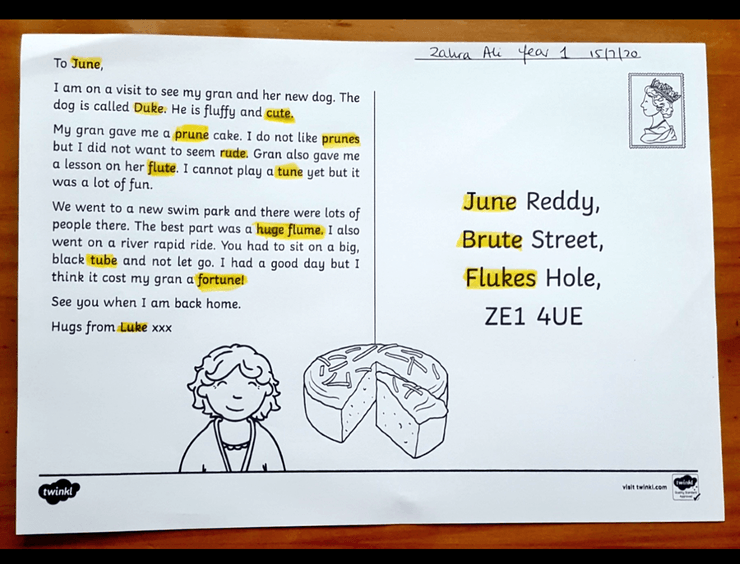 Zahra Ali Year 1 15/7/20
To June,
I am on a visit to see my gran and her new dog. The
dog is called Duke. He is fluffy and cute.
My gran gave me a prune cake. I do not like prunes
but I did not want to seem rude. Gran also gave me
a lesson on her flute. I cannot play a tune yet but it
was a lot of fun.
We went to a new swim park and there were lots of
people there. The best part was a huge flume. I also
went on a river rapid ride. You had to sit on a big,
black tube and not let go. I had a good day but I
think it cost my gran a fortune!
See you when I am back home.
Hugs from Luke xxx
June Reddy,
Brute Street,
Flukes Hole,
ZE1 4UE
twinkl
visit twinkl.com
twinkl